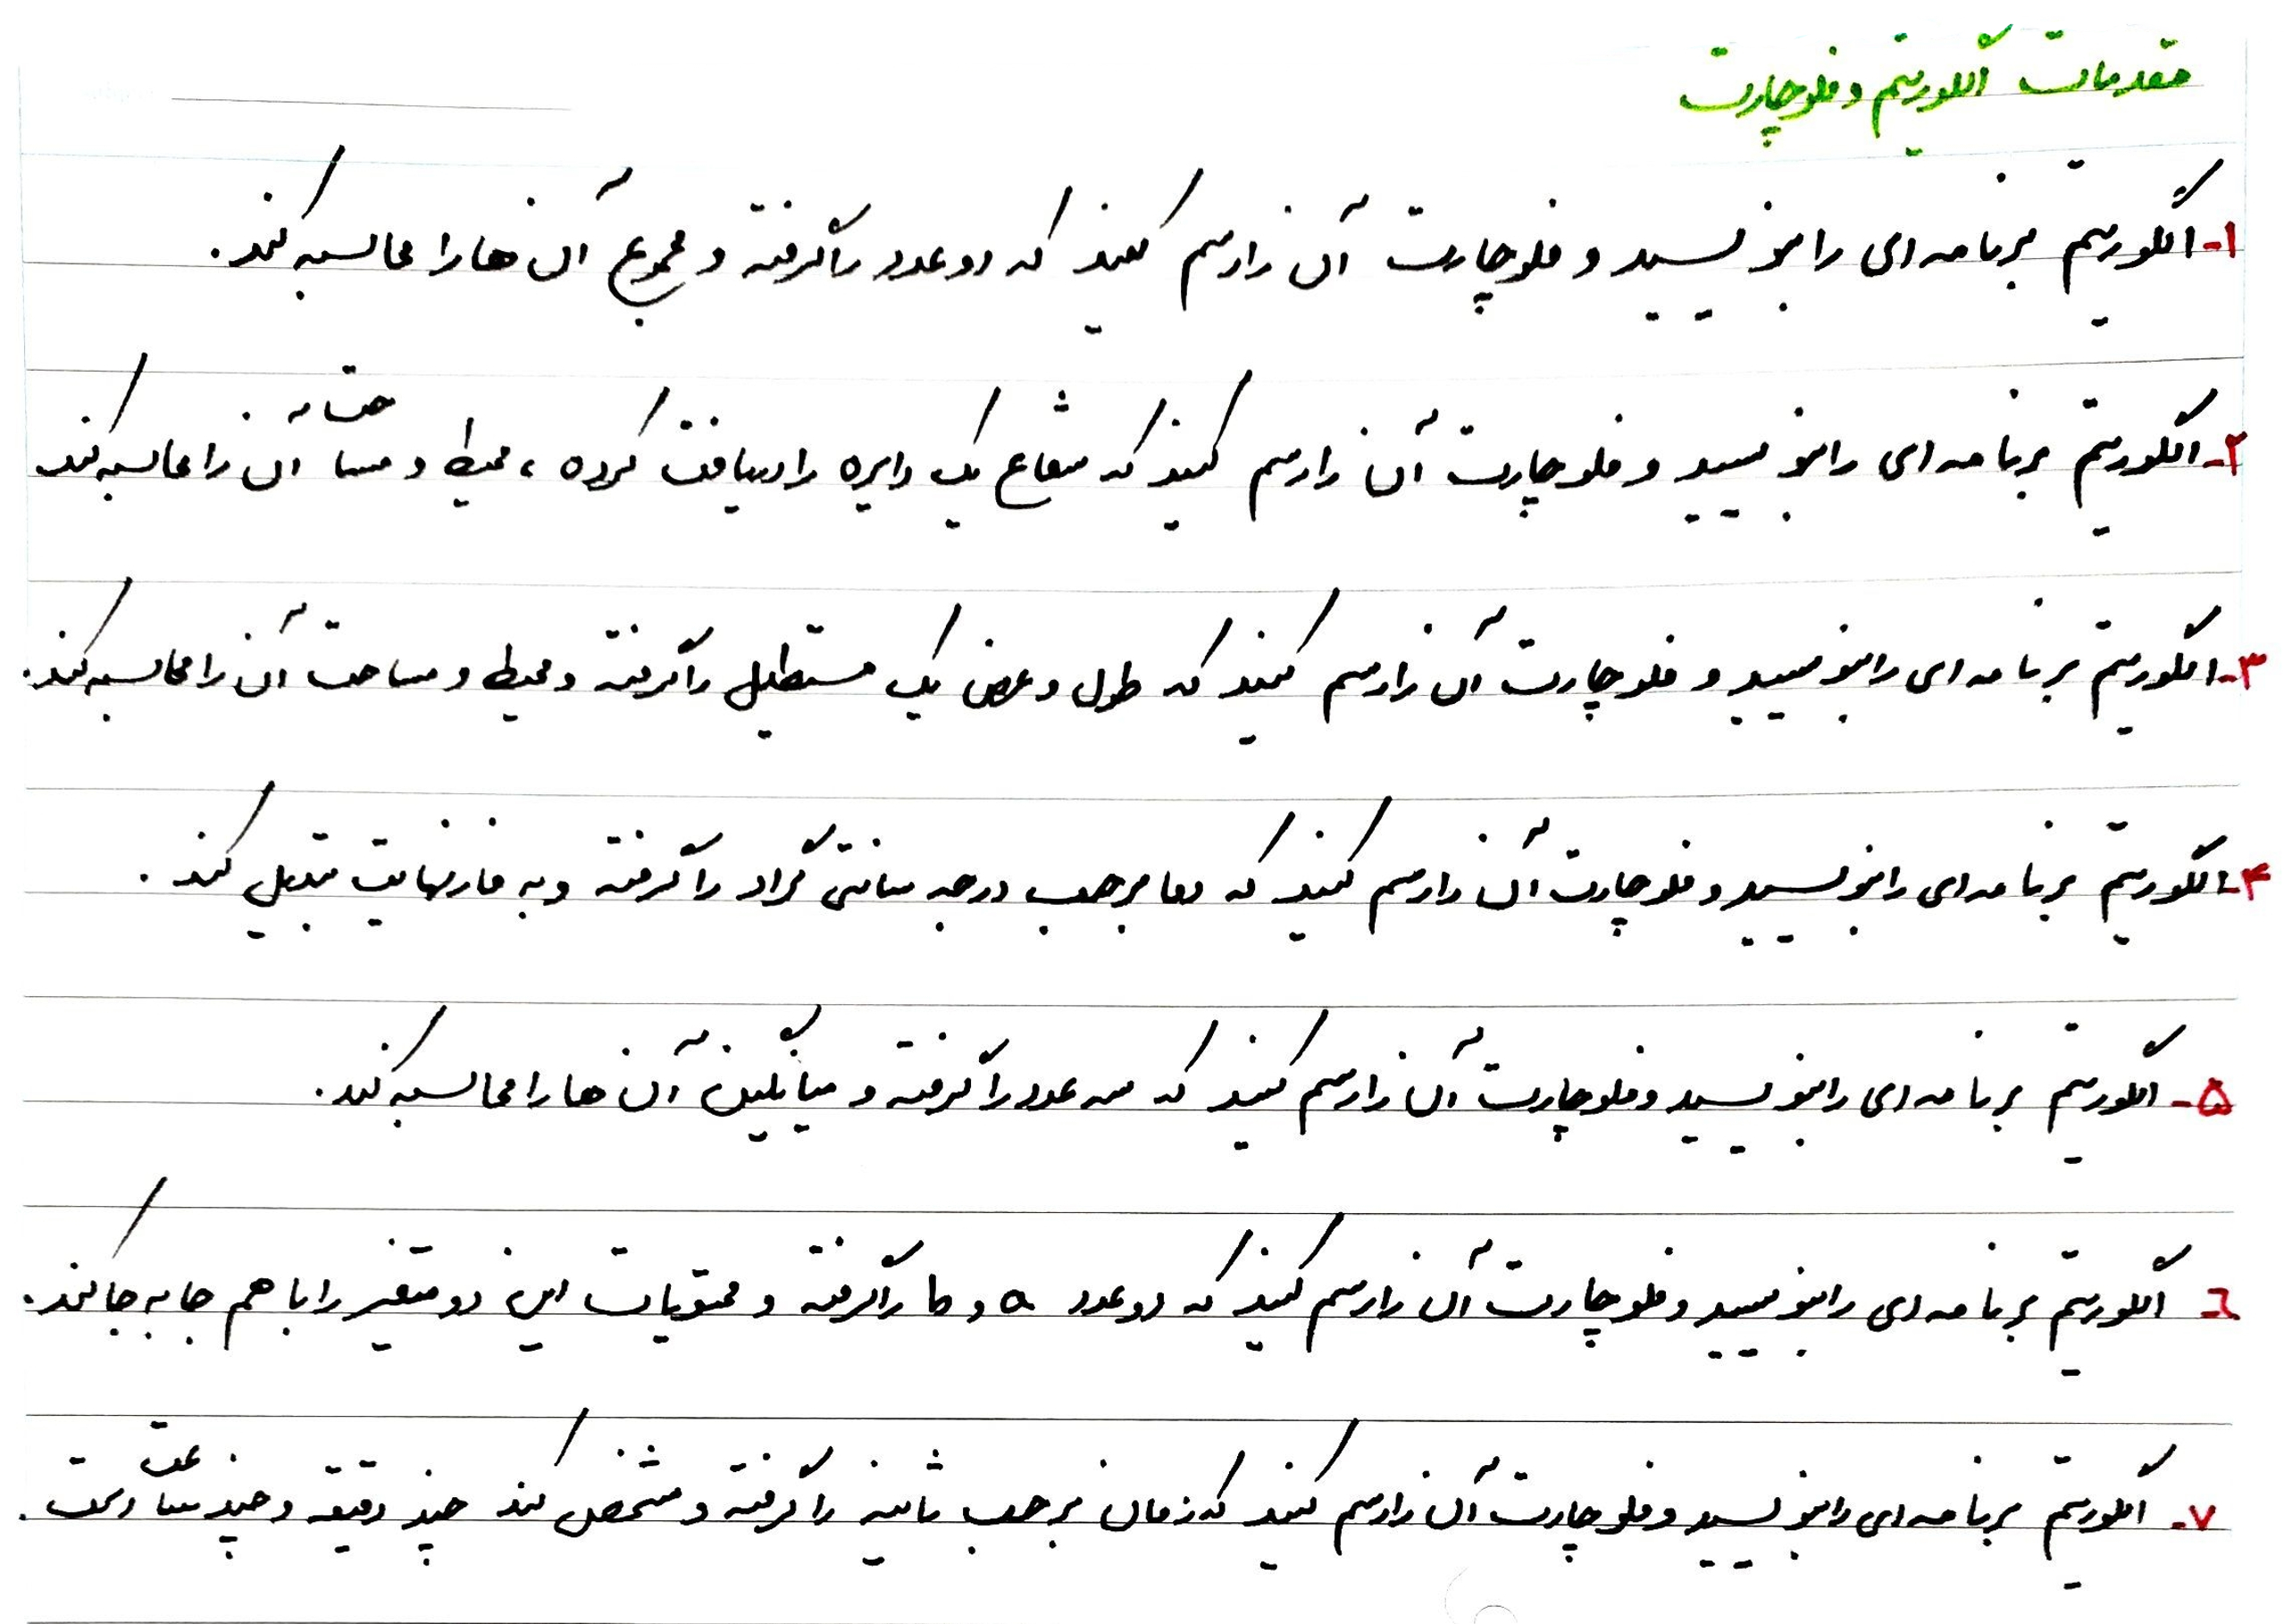 مقدمات الگوریتم و فلوچارت
۱- الگوریتم برنامه ای را بنویسید و فلوچارت آن را رسم کنید که دو عدد را گرفته و مجموع آن ها را محاسبه کند.
۲- الگوریتم برنامه ای را بنویسید و فلوچارت آن را رسم کنید که شعاع یک دایره را دریافت کرده، محیط و مساحت آن را محاسبه کند
۳- الگوریتم برنامه ای را بنویسید و فلوچارت آن را رسم کنید که طول و عرض یک مستطیل را گرفته و محیط و مساحت آن را محاسبه کند.
۴- الگوریتم برنامه ای را بنویسید و فلوچارت آن را رسم کنید که دما برحسب درجه سانتی گراد را گرفته و به فارنهایت تبدیل کند.
۵- الگوریتم برنامه ای را بنویسید و فلوچارت آن را رسم کنید که سه عدد را گرفته و میانگین آن ها را محاسبه کند.
۶- الگوریتم برنامه ای را بنویسید و فلوچارت آن را رسم کنید که دو عدد a و b را گرفته و محتویات این دو متغیر را با هم جا به جا کند.
۷- الگوریتم برنامه ای را بنویسید و فلوچارت آن را رسم کنید که زمان برحسب ثانیه را گرفته و مشخص کند چند دقیقه و چند ساعت است.